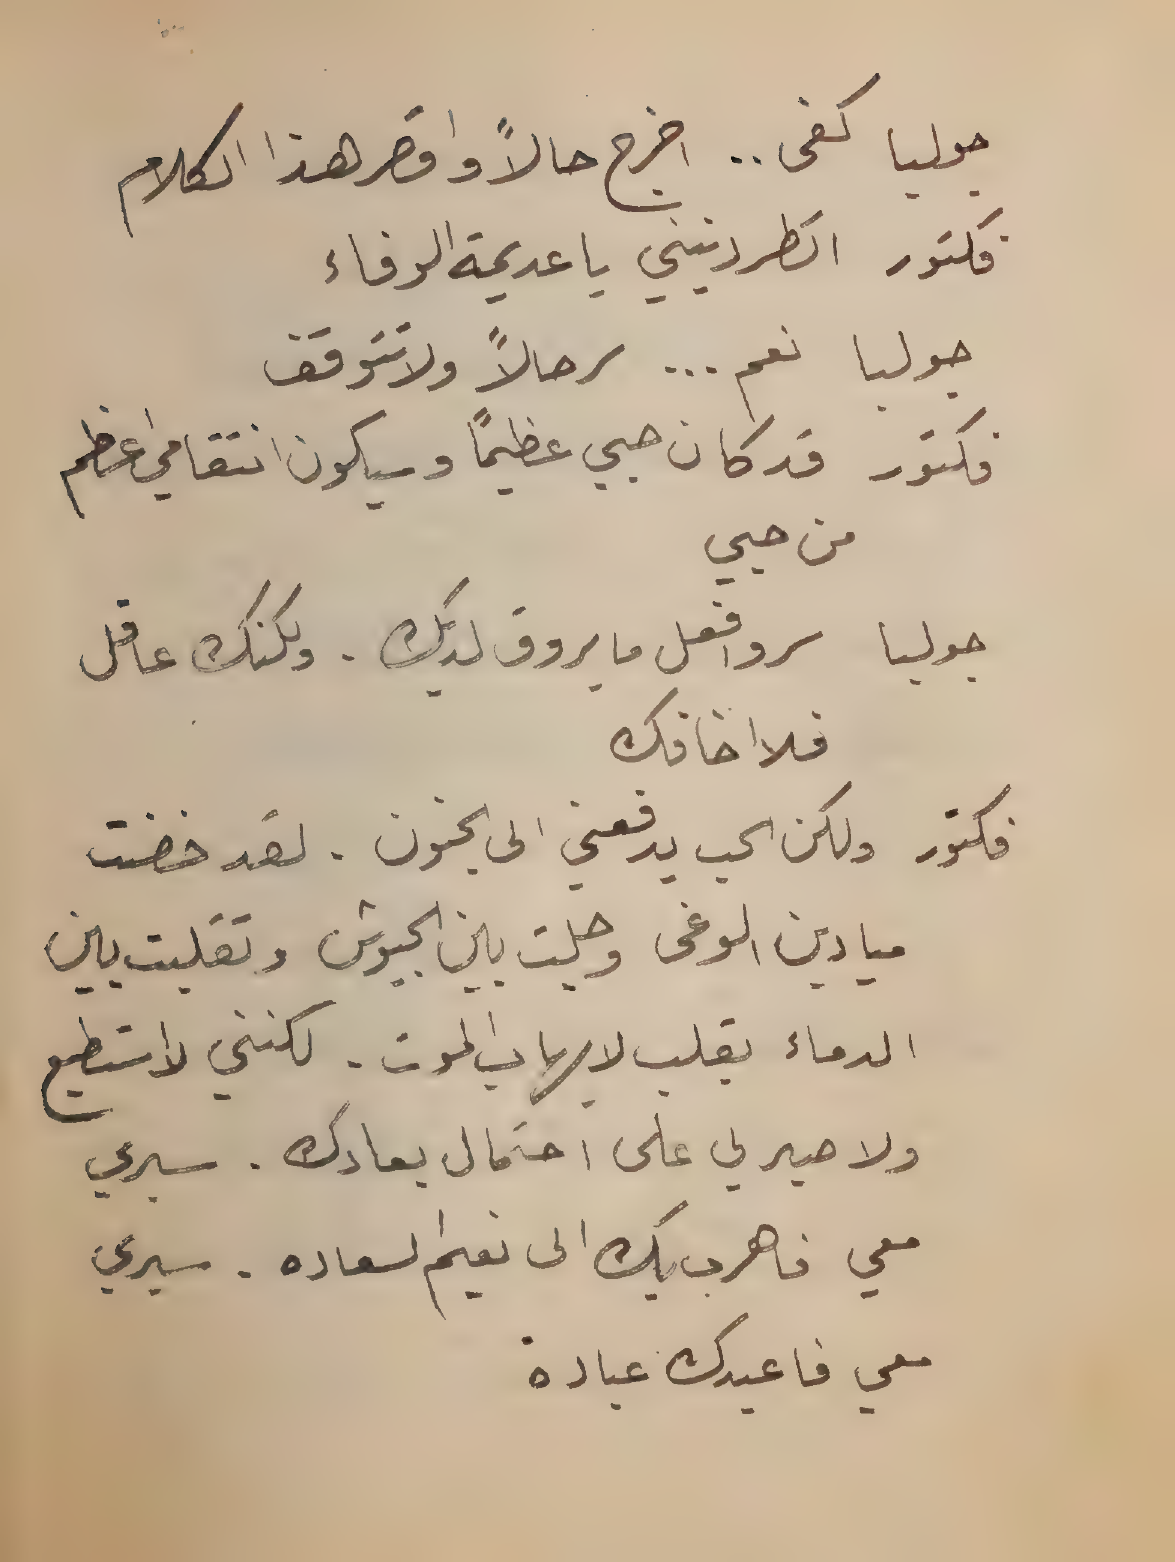 جوليا كفى .. اخرج حالاً واقصر هذا الكلام
فكتور اتطردينني يا عديمة الوفاء
جوليا نعم ... سر حالاً ولا تتوقف
فكتور قد كان حبي عظيمًا وسيكون انتقامي اعظم
من حبي
جوليا سر وافعل ما يروق لديك . ولكنك عاقل
فلا اخافك
فكتور ولكن الحب يدفعني الى الجنون . لقد خضت
ميادين الوغى وجلت بين الجيوش وتقلبت بين
الدماء بقلب لا يهاب الموت . لكنني لا استطيع
ولا صبر لي على احتمال بعادك . سيري
معي فاهرب بك الى نعيم السعاده . سيري
معي فاعبدك عبادة